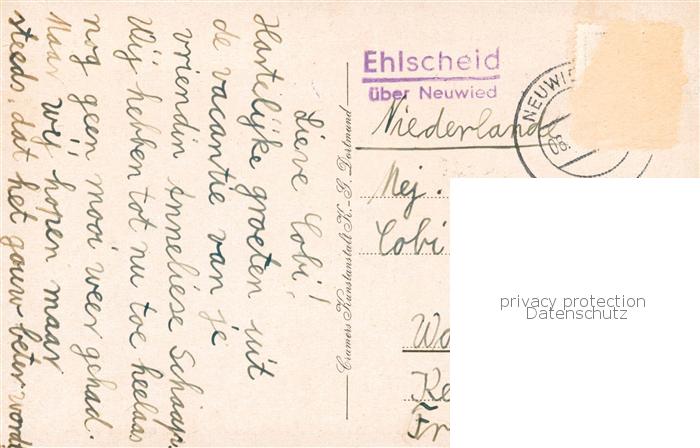 Lieve Cobi!
Hartelijke groeten uit
de vacantie van je
vriendin Anneliese Schaap.
Wij hebben tot nu toe helaas
nog geen mooi weer gehad.
Maar wij hopen maar
steeds, dat het gauw beter word
Cramers Kunstanstalt K.-G. Dortmund
Ehlscheid
über Neuwied
NEUWIE
Niederlande
Mej.
Cobi
Wo
Ke
Fr
privacy protection
Datenschutz